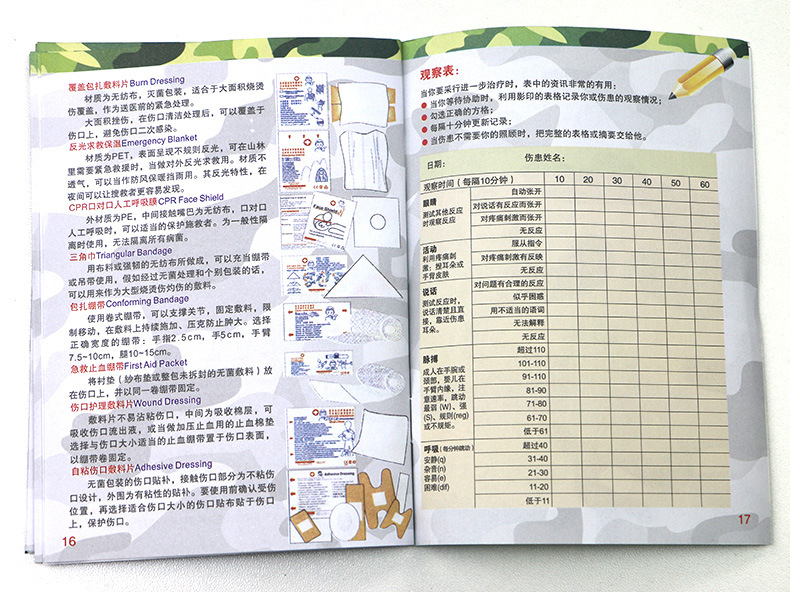 覆盖包扎敷料片Burn Dressing
材质为无纺布，灭菌包装，适合于大面积烧烫
伤覆盖，作为送医前的紧急处理。
大面积挫伤，在伤口清洁处理后，可以覆盖于
伤口上，避免伤口二次感染。
反光求救保温Emergency Blanket
材质为PET，表面呈现不规则反光，可在山林
里需要紧急救援时，当做对外反光求救用。材质不
透气，可以当作防风保暖挡雨用。其反光特性，在
夜间可以让搜救者更容易发现。
CPR口对口人工呼吸膜CPR Face Shield
外材质为PE，中间接触嘴巴为无纺布，口对口
人工呼吸时，可以适当的保护施救者。为一般性隔
离时使用，无法隔离所有病菌。
三角巾Triangular Bandage
用布料或强韧的无纺布所做成，可以充当绷带
或吊带使用，假如经过无菌处理和个别包装的话，
可以用来作为大型烧烫伤灼伤的敷料。
包扎绷带Conforming Bandage
使用卷式绷带，可以支撑关节，固定敷料，限
制移动，在敷料上持续施加、压克防止肿大。选择
正确宽度的绷带：手指2.5cm，手5cm，手臂
7.5~10cm，腿10~15cm。
急救止血绷带First Aid Packet
将衬垫（纱布垫或整包未拆封的无菌敷料）放
在伤口上，并以同一卷绷带固定。
伤口护理敷料片Wound Dressing
敷料片不易沾粘伤口，中间为吸收棉层，可
吸收伤口流出液，或当做加压止血用的止血棉垫
选择与伤口大小适当的止血绷带置于伤口表面，
以绷卷固定。
自粘伤口敷料片Adhesive Dressing
无菌包装的伤口贴补，接触伤口部分为不粘伤
口设计，外围为有粘性的贴补。要使用前确认受伤
位置，再选择适合伤口大小的伤口贴布贴于伤口
上，保护伤口。
16
Face Shield
Adhesive Dressing
观察表：
当你要采行进一步治疗时，表中的资讯非常的有用：
● 当你等待协助时，利用影印的表格记录你或伤患的观察情况；
● 勾选正确的方格；
● 每隔十分钟更新记录；
● 当伤患不需要你的照顾时，把完整的表格或摘要交给他。
日期： 伤患姓名：
观察时间（每隔10分钟） 10 20 30 40 50 60
眼睛
测试其他反应
时观察反应
自动张开
对说话有反应而张开
对疼痛刺激而张开
无反应
活动
利用疼痛刺
激：捏耳朵或
手臂皮肤
服从指令
对疼痛刺激有反映
无反应
说话
测试反应时，
说话清楚且直
接，靠近伤患
耳朵。
对问题有合理的反应
似乎困惑
用不适当的语词
无法解释
无反应
脉搏
成人在手腕或
颈部，婴儿在
手臂内缘，注
意速率，跳动
最弱（W)、强
(S)、规则(reg)
或不规矩。
超过110
101-110
91-110
81-90
71-80
61-70
低于61
呼吸（每分钟跳动）
安静(q)
杂音(n)
容易(e)
困难(dif)
超过40
31-40
21-30
11-20
低于11
17